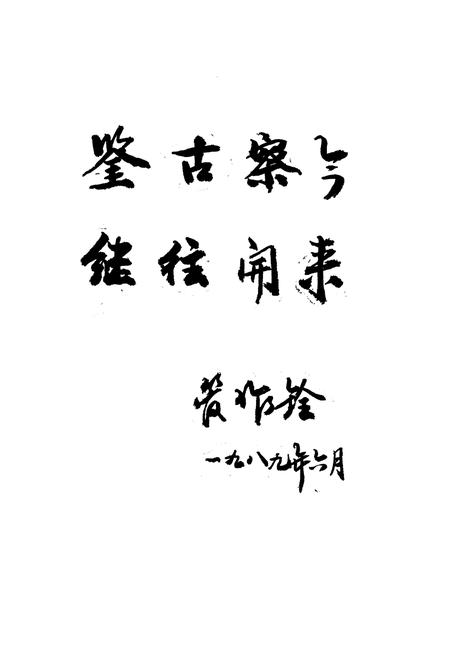 鉴古察今
继往开来
一九八九年六月